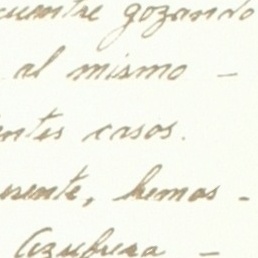 cuentre gozando
al mismo -
entes casos.
erente, hemos -
Azufrera -